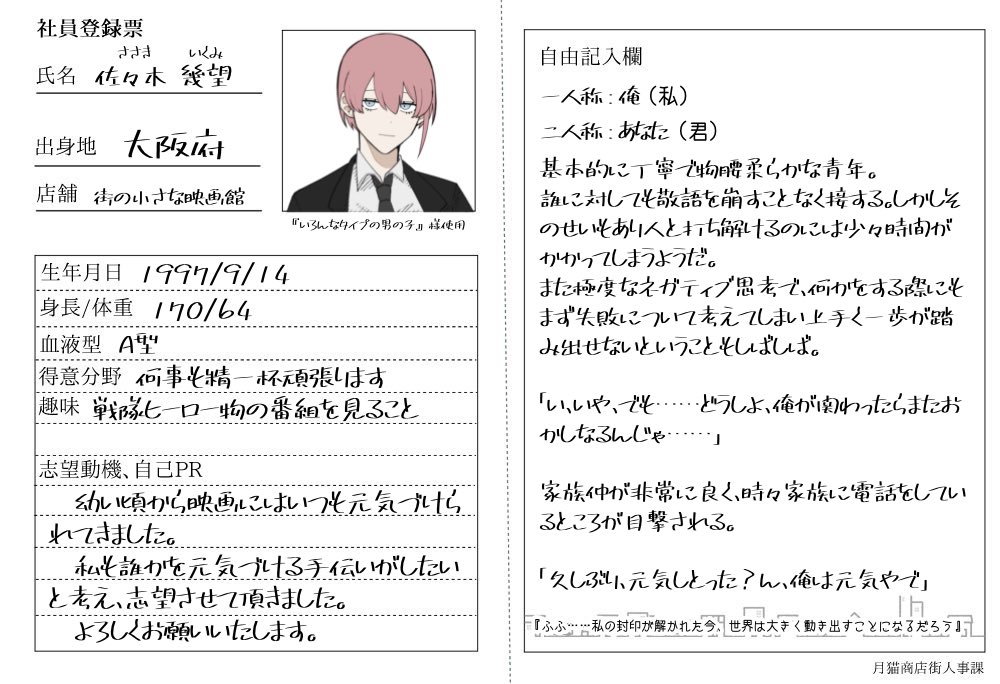 社員登録票
ささき いくみ
氏名 佐々木 幾望
出身地 大阪府
店舗 街の小さな映画館
『いろんなタイプの男の子』様使用
生年月日 1997/9/14
身長/体重 170/64
血液型 A型
得意分野 何事も精一杯頑張ります
趣味 戦隊ヒーロー物の番組を見ること
志望動機、自己PR
幼い頃から映画にはいつも元気づけら
れてきました。
私も誰かを元気づける手伝いがしたい
と考え、志望させて頂きました。
よろしくお願いいたします。
自由記入欄
一人称:俺(私)
二人称:あなた(君)
基本的に丁寧で物腰柔らかな青年。
誰に対しても敬語を崩すことなく接する。しかしそ
のせいもあり人と打ち解けるのには少々時間が
かかってしまうようだ。
また極度なネガティブ思考で、何かをする際にも
まず失敗について考えてしまい上手く一歩が踏
み出せないということもしばしば。
「い、いや、でも……どうしよ、俺が関わったらまたお
かしなるんじゃ……」
家族仲が非常に良く、時々家族に電話をしてい
るところが目撃される。
「久しぶり、元気しとった?ん、俺は元気やで」
『ふふ……私の封印が解かれた今、世界は大きく動き出すことになるだろう』
月猫商店街人事課